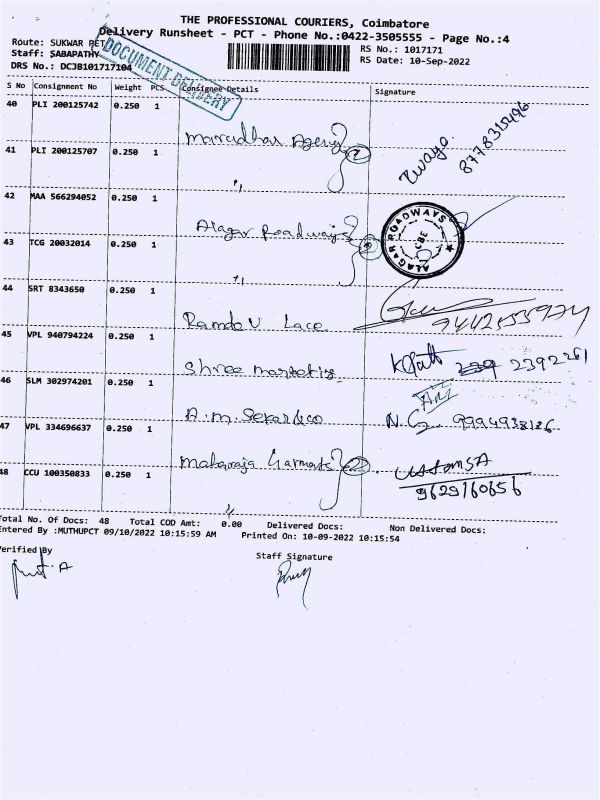 THE PROFESSIONAL COURIERS, Coimbatore
Delivery Runsheet - PCT - Phone No.:0422-3505555 - Page No.:4
Route: SUKWAR PET
RS No.: 1017171
Staff: SABAPATHY
RS Date: 10-Sep-2022
DRS No.: DCJB101717104
DOCUMENT DELIVERY
S No Consignment No Weight PCS Consignee Details Signature
40 PLI 200125742 0.250 1
8778315496
41 PLI 200125707 0.250 1 " 2
42 MAA 566294052 0.250 1 Alagar Roadways
ALAGAR ROADWAYS CBE
43 TCG 20032014 0.250 1 " 2
44 SRT 8343650 0.250 1 Ramdev Lace
45 VPL 940794224 0.250 1 2392261
46 SLM 302974201 0.250 1 A.M. Sekar&co
47 VPL 334696637 0.250 1 Maharaja 2
9629160656
48 CCU 100350833 0.250 1 "
Total No. Of Docs: 48 Total COD Amt: 0.00 Delivered Docs: Non Delivered Docs:
Entered By :MUTHUPCT 09/10/2022 10:15:59 AM Printed On: 10-09-2022 10:15:54
Verified By Staff Signature